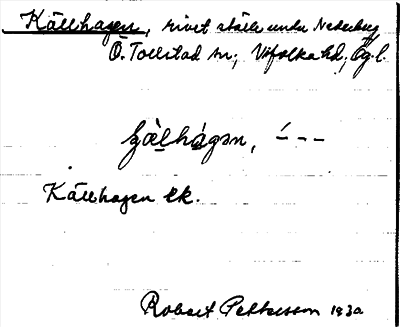 Källhagen, rivet ställe under Nederberg
Ö. Tollstad sn; Vifolka hd; Ög. l.
Källhagen ek.
Robert Pettersson 1930